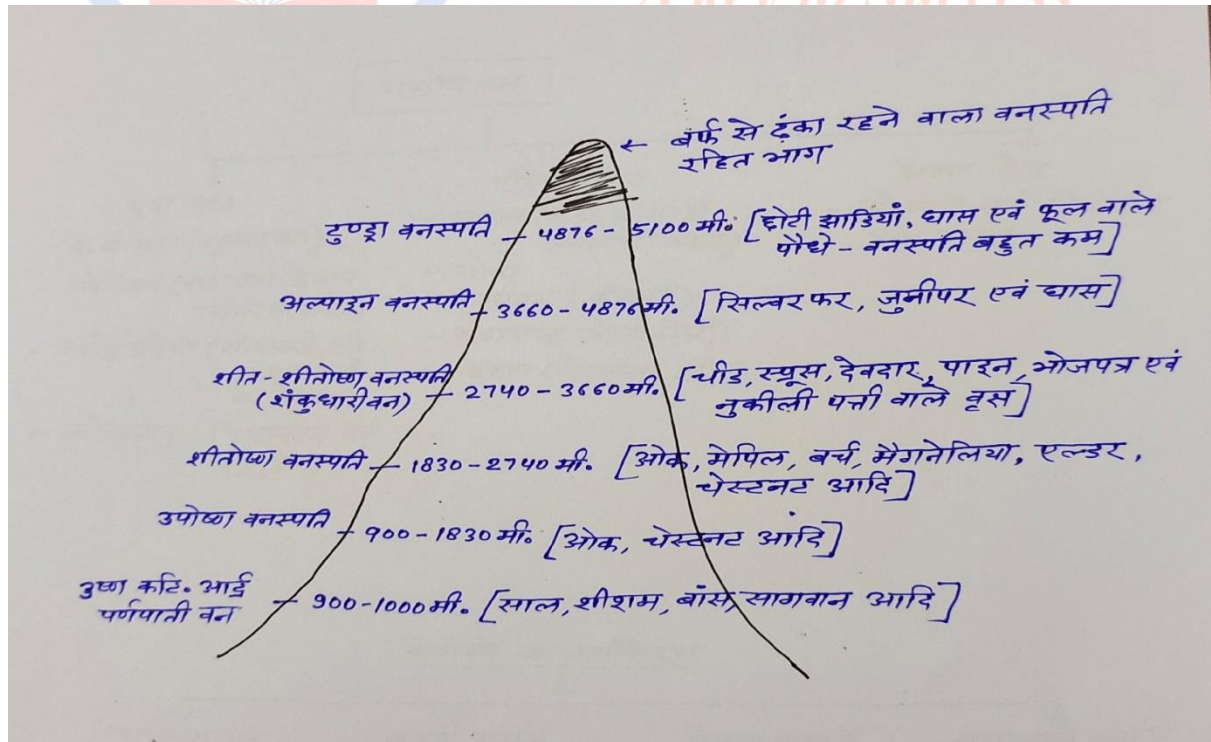 ← बर्फ से ढ़ंका रहने वाला वनस्पति
रहित भाग
टुण्ड्रा वनस्पति – 4876 - 5100 मी. [छोटी झाडियां, घास एवं फूल वाले
पौधे - वनस्पति बहुत कम]
अल्पाइन वनस्पति - 3660 - 4876 मी. [सिल्वर फर, जुनीपर एवं घास]
शीत - शीतोष्ण वनस्पति
(शंकुधारी वन) – 2740 - 3660 मी. [चीड, स्प्रूस, देवदार, पाइन, भोजपत्र एवं
नुकीली पत्ती वाले वृस]
शीतोष्ण वनस्पति – 1830 - 2740 मी. [ओक, मेपिल, बर्च, मैगनेलिया, एल्डर,
चेस्टनट आदि]
उपोष्ण वनस्पति - 900 - 1830 मी. [ओक, चेस्टनट आदि]
उष्ण कटि. आर्द्र
पर्णपाती वन – 900-1000 मी. [साल, शीशम, बाँस, सागवान आदि]